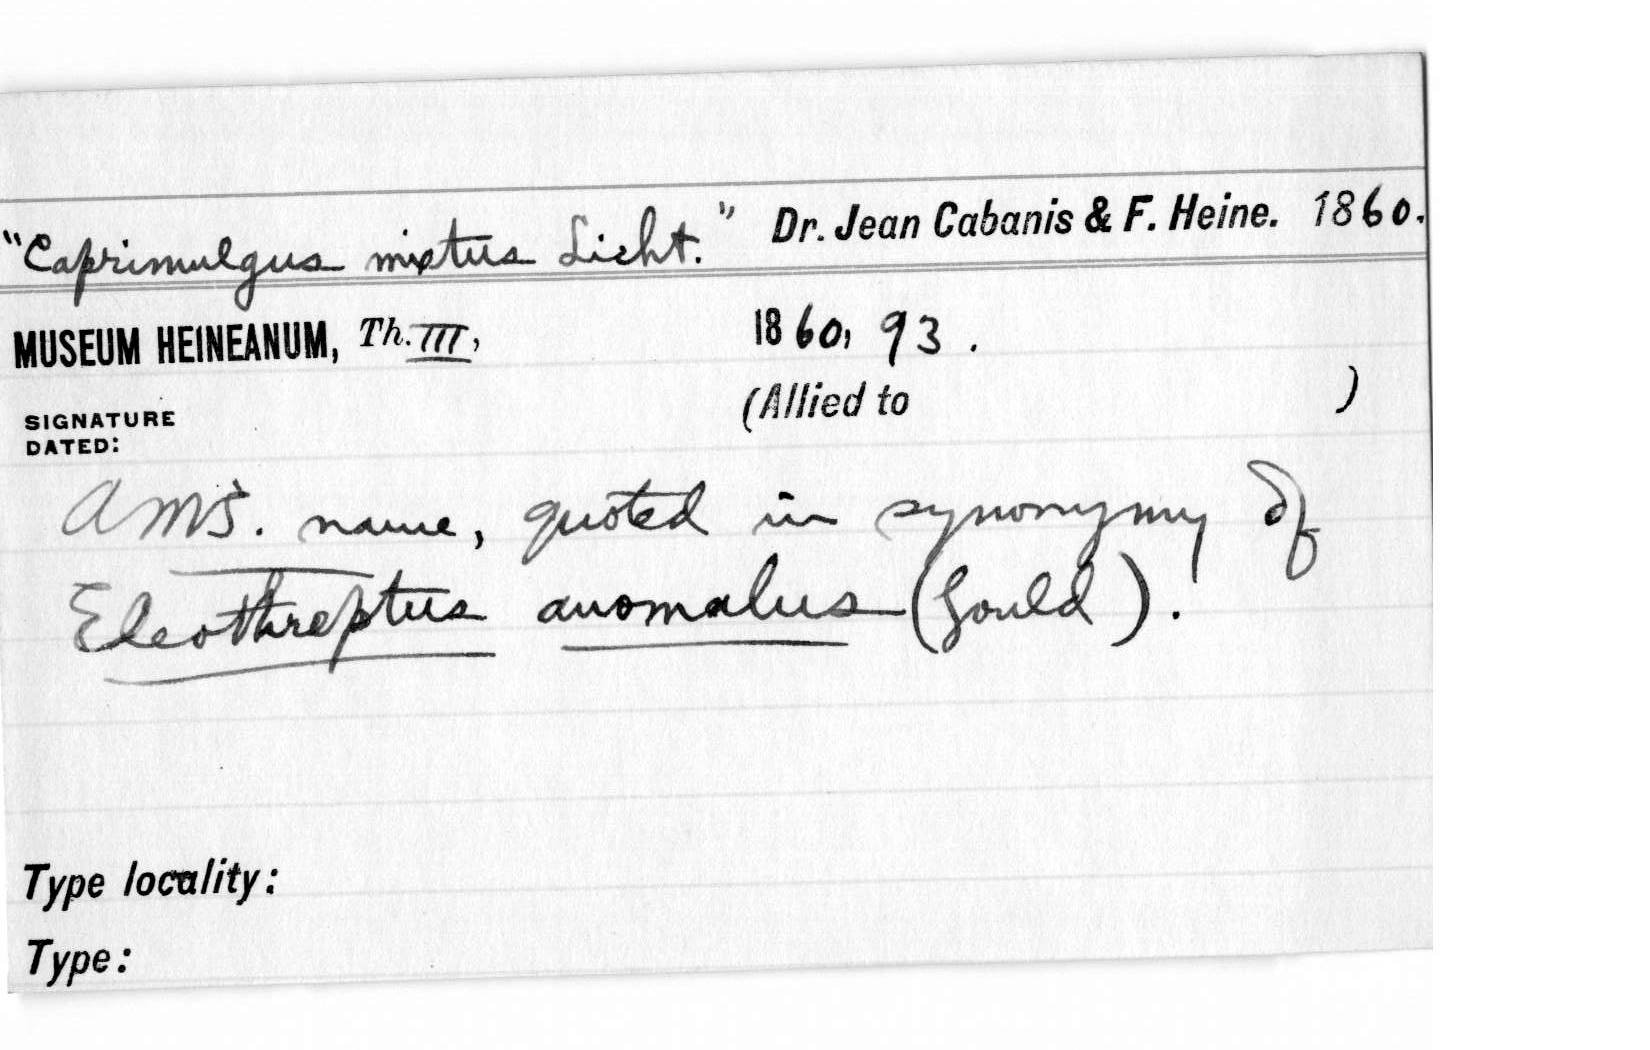 "Caprimulgus mixtus Licht." Dr. Jean Cabanis & F. Heine. 1860.
MUSEUM HEINEANUM, Th. III, 1860, 93.
(Allied to )
SIGNATURE
DATED:
A MS. name, quoted in synonymy of
Eleothreptus anomalus (Gould).
Type locality:
Type: